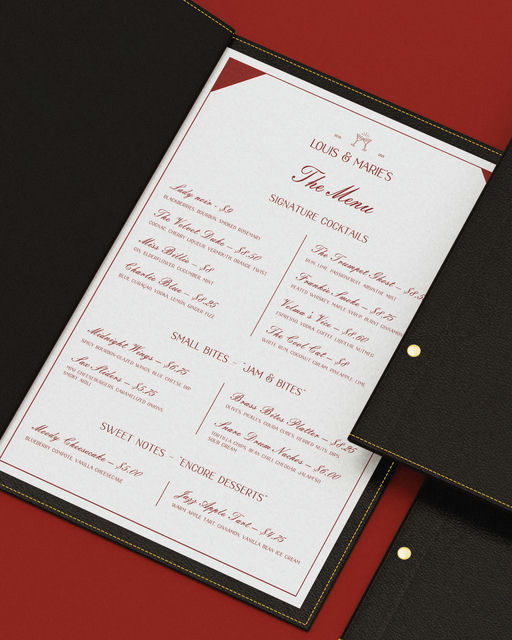 LOUIS & MARIE'S
The Menu
SIGNATURE COCKTAILS
Lady noir - $9
BLACKBERRIES, BOURBON, SMOKED ROSEMARY
The Velvet Duke – $8.50
COGNAC, CHERRY LIQUEUR, VERMOUTH, ORANGE TWIST
Miss Billie – $8
GIN, ELDERFLOWER, CUCUMBER, MINT
Charlie Blue – $8.25
BLUE CURAÇAO, VODKA, LEMON, GINGER FIZZ
The Trumpet Ghost – $8.5
RUM, LIME, PASSIONFRUIT, ABSINTHE MIST
Frankie Smoke – $8.75
PEATED WHISKEY, MAPLE SYRUP, BURNT CINNAMON
Velma's Vice – $8.00
ESPRESSO, VODKA, COFFEE LIQUEUR, NUTMEG
The Cool Cat – $8
WHITE RUM, COCONUT CREAM, PINEAPPLE, LIME
SMALL BITES – "JAM & BITES"
Midnight Wings – $6.75
SPICY BOURBON-GLAZED WINGS, BLUE CHEESE DIP
Sax Sliders – $5.75
MINI CHEESEBURGERS, CARAMELIZED ONIONS,
SMOKY AIOLI
Brass Bites Platter – $8.25
OLIVES, PICKLES, GOUDA CUBES, HERBED NUTS, DIPS
Snare Drum Nachos – $6.00
TORTILLA CHIPS, BEAN CHILI, CHEDDAR, JALAPEÑO,
SOUR CREAM
SWEET NOTES – "ENCORE DESSERTS"
Moody Cheesecake – $5.00
BLUEBERRY COMPOTE, VANILLA CHEESECAKE
Jazz Apple Tart – $4.75
WARM APPLE TART, CINNAMON, VANILLA BEAN ICE CREAM